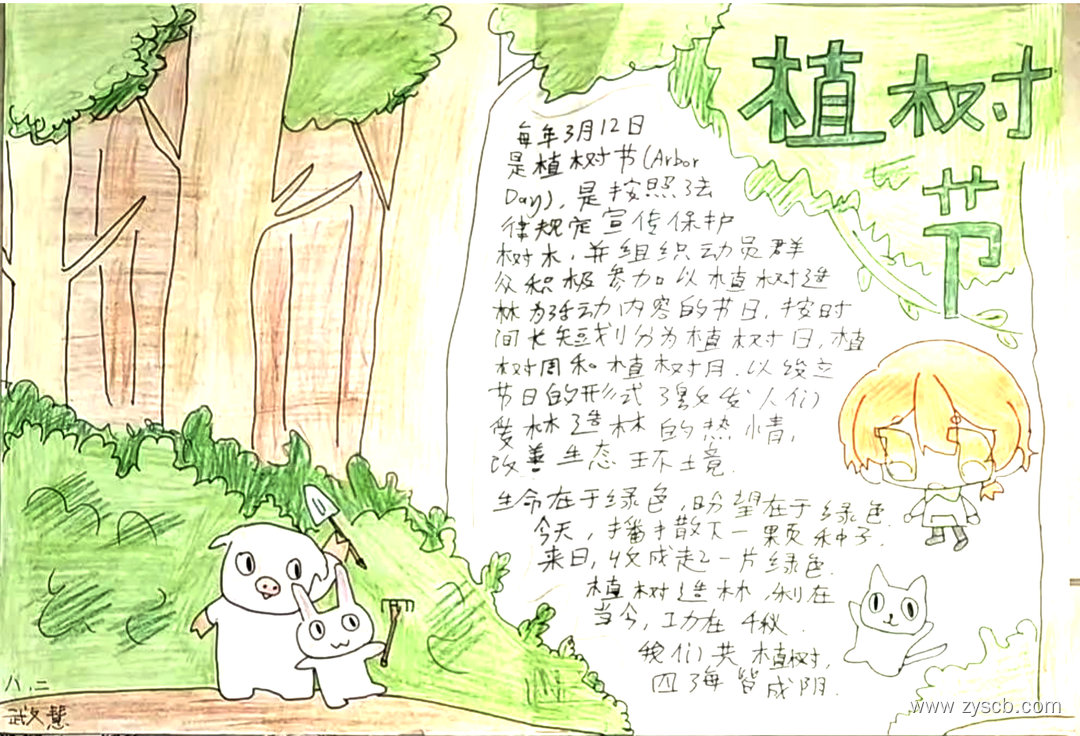 植树
节
每年3月12日
是植树节(Arbor
Day),是按照法
律规定宣传保护
树木,并组织动员群
众积极参加以植树造
林为活动内容的节日,按时
间长短划分为植树日,植
树周和植树月.以设立
节日的形式激发人们
爱林造林的热情,
改善生态环境.
生命在于绿色,盼望在于绿色
今天,播撒下一颗种子.
来日,收成一片绿色.
植树造林,利在
当今,功在千秋.
我们共植树,
四海皆成阴.
八.二
武文慧
www.zyscb.com